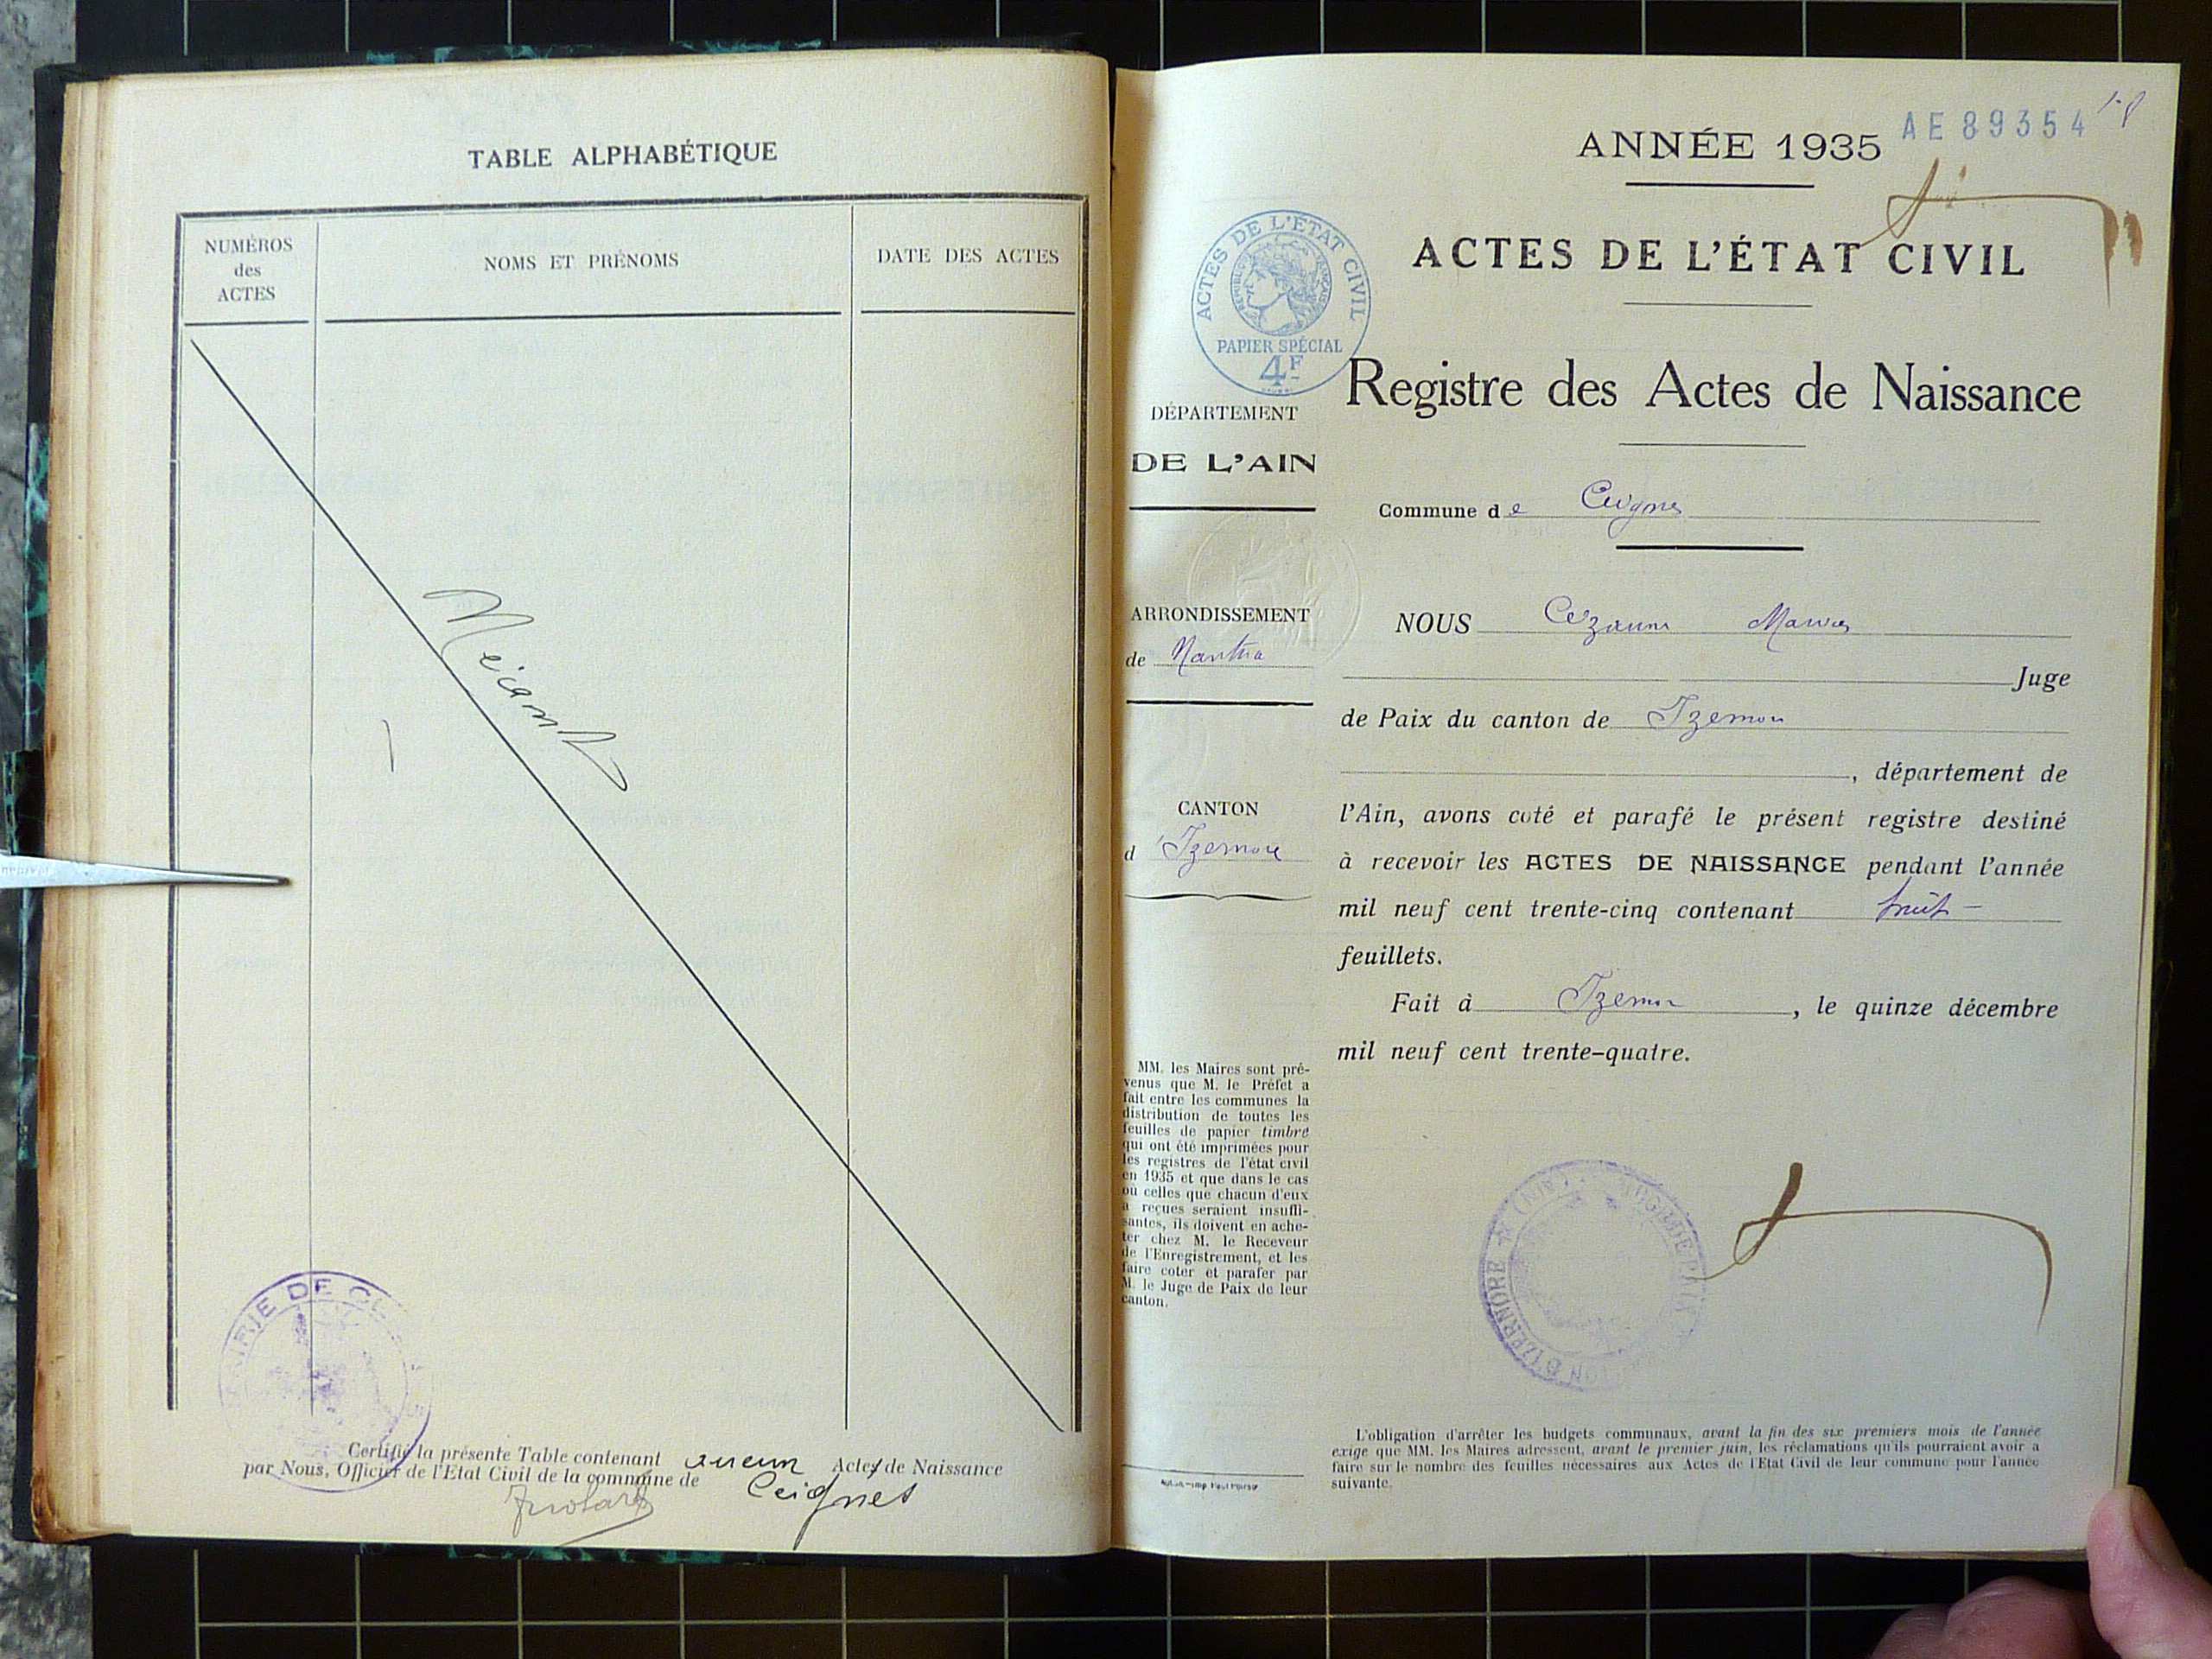 TABLE ALPHABÉTIQUE
NUMÉROS
des
ACTES
NOMS ET PRÉNOMS
DATE DES ACTES
Néant
MAIRIE DE
Certifié la présente Table contenant aucun Actes de Naissance
par Nous, Officier de l'Etat Civil de la commune de Ceignes
AE 89354
1-8
ANNÉE 1935
ACTES DE L'ÉTAT CIVIL
ACTES DE L'ÉTAT CIVIL
RÉPUBLIQUE FRANÇAISE
PAPIER SPÉCIAL
4F
Registre des Actes de Naissance
DÉPARTEMENT
DE L'AIN
Commune de Ceignes
ARRONDISSEMENT
de Nantua
CANTON
d'Izernore
NOUS
Juge
de Paix du canton de Izernore
, département de
l'Ain, avons coté et parafé le présent registre destiné
à recevoir les ACTES DE NAISSANCE pendant l'année
mil neuf cent trente-cinq contenant huit
feuillets.
Fait à Izernore, le quinze décembre
mil neuf cent trente-quatre.
MM. les Maires sont pré-
venus que M. le Préfet a
fait entre les communes la
distribution de toutes les
feuilles de papier timbré
qui ont été imprimées pour
les registres de l'état civil
en 1935 et que dans le cas
où celles que chacun d'eux
a reçues seraient insuffi-
santes, ils doivent en ache-
ter chez M. le Receveur
de l'Enregistrement, et les
faire coter et parafer par
M. le Juge de Paix de leur
canton.
D'IZERNORE (AIN)
L'obligation d'arrêter les budgets communaux, avant la fin des six premiers mois de l'année
exige que MM. les Maires adressent, avant le premier juin, les réclamations qu'ils pourraient avoir à
faire sur le nombre des feuilles nécessaires aux Actes de l'Etat Civil de leur commune pour l'année
suivante.